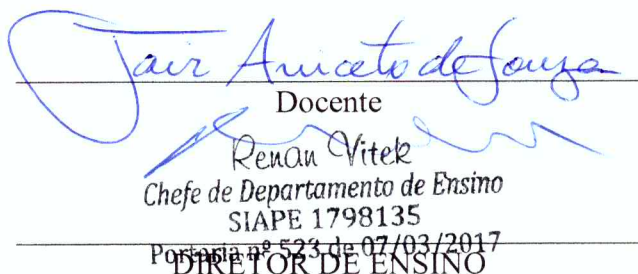 Jair Aniceto de Souza
Docente
Renan Vitek
Chefe de Departamento de Ensino
SIAPE 1798135
Portaria nº 523 de 07/03/2017
DIRETOR DE ENSINO